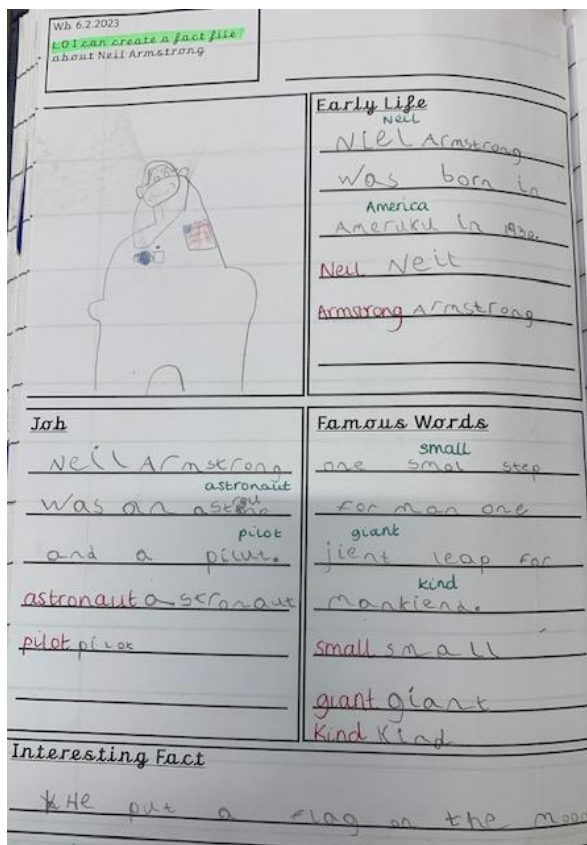 Wb 6.2.2023
L.O I can create a fact file
about Neil Armstrong
Early Life
Neil
Niel Armstrong
was born in
America
Ameruku in 1930.
Neil Neil
Armstrong Armstrong
Job
Neil Armstrong
astronaut
was an
pilot
and a pilut.
astronaut astronaut
pilot pilot
Famous Words
small
one smal step
for man one
giant
jient leap for
kind
mankiend.
small small
giant giant
Kind Kind
Interesting Fact
He put a flag on the moon